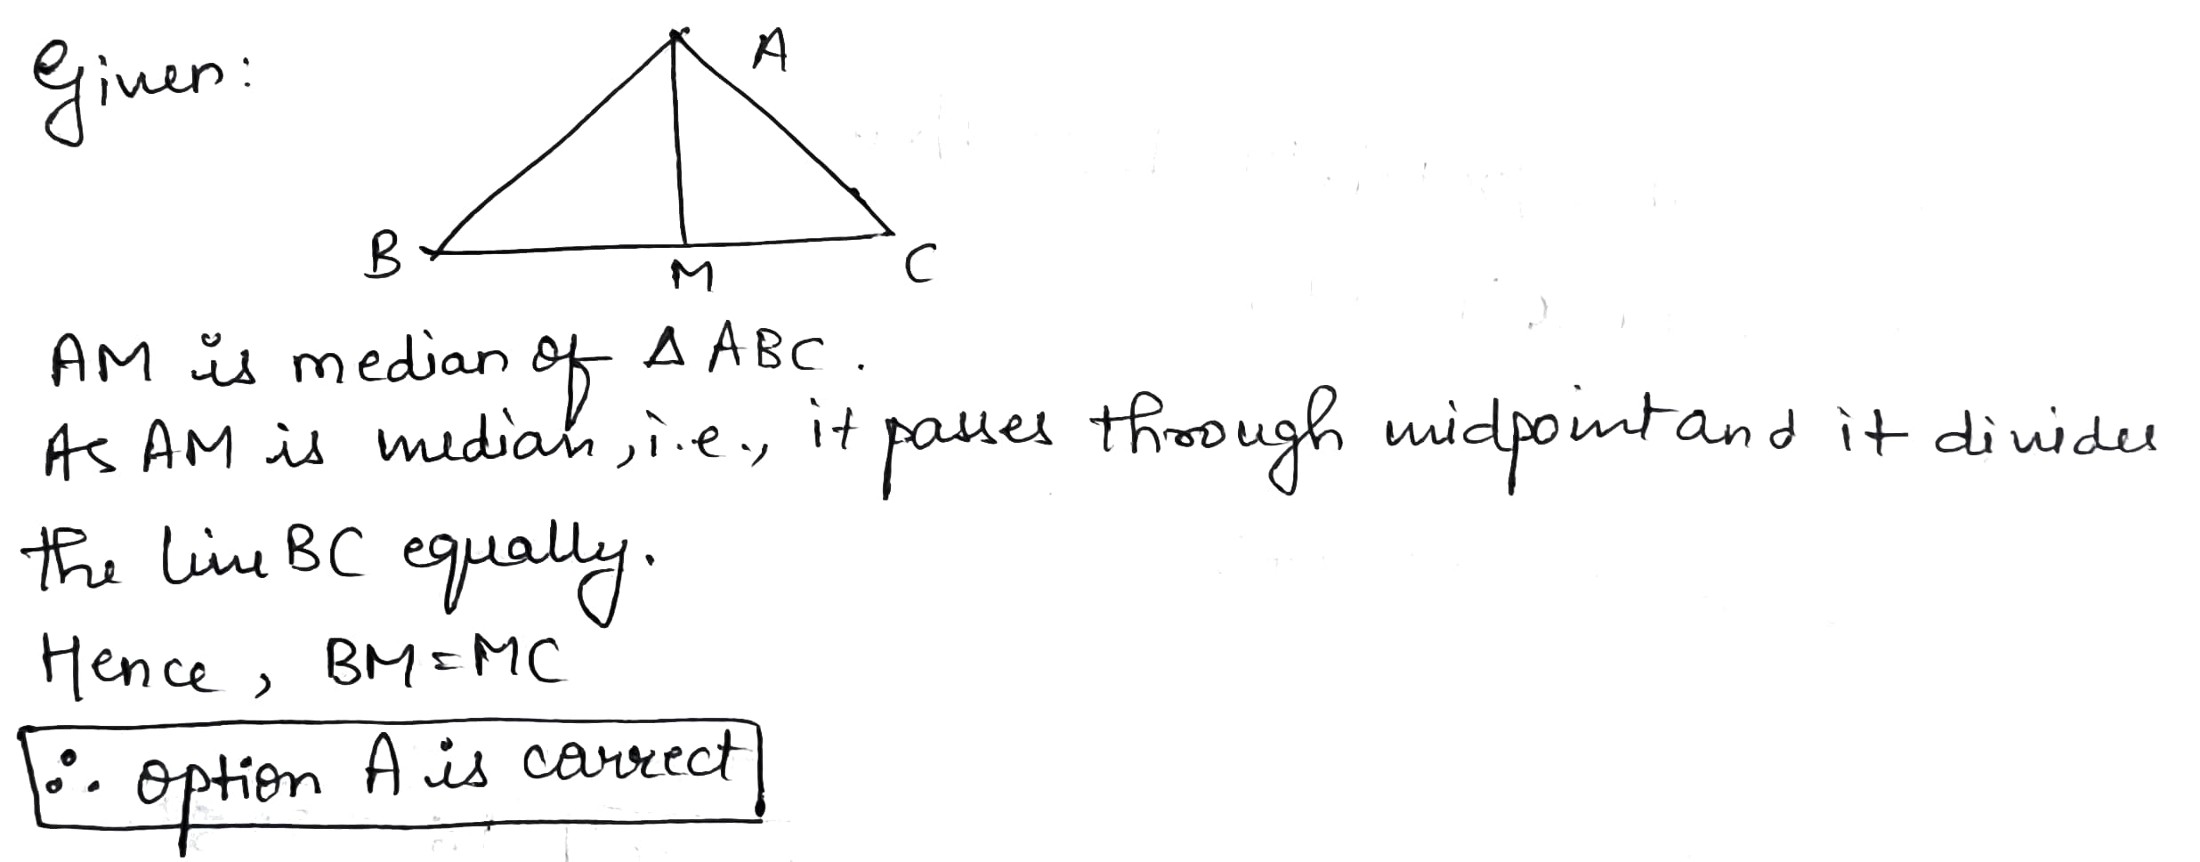 Given:
A
B
M
C
AM is median of Δ ABC.
As AM is median, i.e., it passes through midpoint and it divides
the line BC equally.
Hence, BM = MC
∴ option A is correct